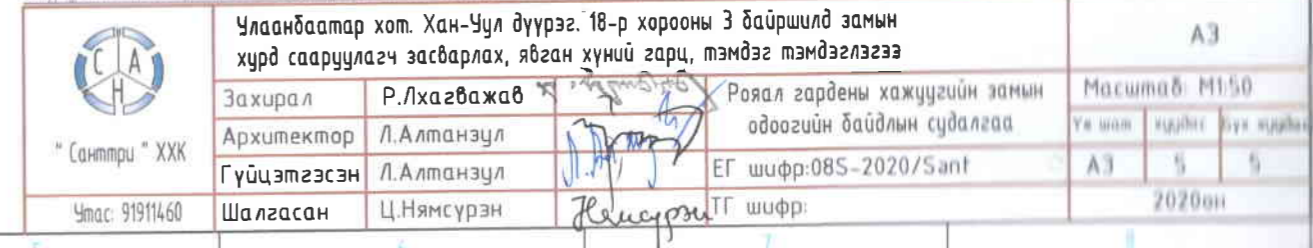 Улаанбаатар хот. Хан-Уул дүүрэг. 18-р хорооны 3 байршилд замын
хурд сааруулагч засварлах, явган хүний гарц, тэмдэг тэмдэглэгээ
АЗ
САН
" Санттри " ХХК
Утас: 91911460
Захирал Р.Лхагважав
Архитектор Л.Алтанзул
Гүйцэтгэсэн Л.Алтанзул
Шалгасан Ц.Нямсүрэн
Нямсүрэн
Роял гардены хажуугийн замын
одоогийн байдлын судалгаа
ЕГ шифр:08S-2020/Sant
ТГ шифр:
Масштаб: М1:50
Үе шат хуудас Бүх хуудас
АЗ 5 5
2020он
6
7
8